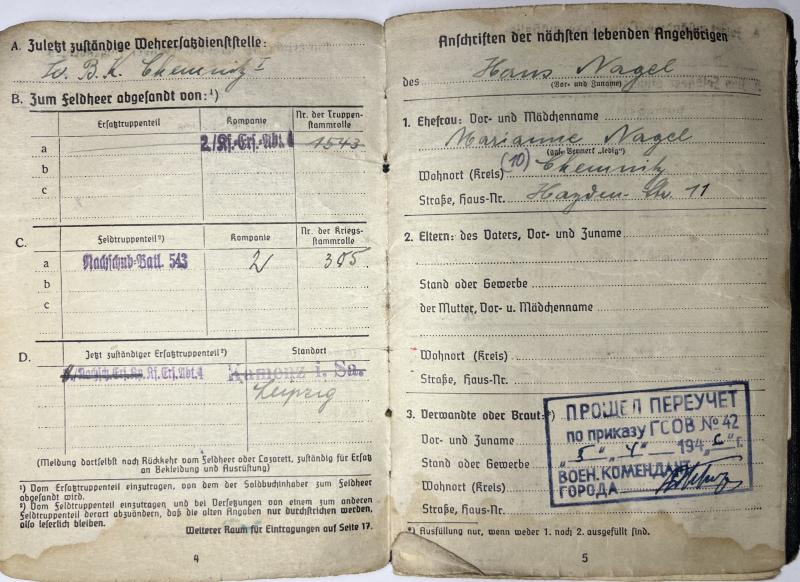 A. Zuletzt zuständige Wehrersatzdienststelle:
W. B. K. Chemnitz I
B. Zum Feldheer abgesandt von:¹)
Ersatztruppenteil
Kompanie
Nr. der Truppen-
stammrolle
a
2./Kf.-Ers.-Abt. 4
1543
b
c
C.
Feldtruppenteil²)
Kompanie
Nr. der Kriegs-
stammrolle
a
Nachschub-Batl. 543
2
305
b
c
D.
Jetzt zuständiger Ersatztruppenteil²)
Standort
Kf. Ers. Abt. 4
Kamenz i. Sa.
Leipzig
(Meldung dortselbst nach Rückkehr vom Feldheer oder Lazarett, zuständig für Ersatz
an Bekleidung und Ausrüstung)
¹) Vom Ersatztruppenteil einzutragen, von dem der Soldbuchinhaber zum Feldheer
abgesandt wird.
²) Vom Feldtruppenteil einzutragen und bei Versetzungen von einem zum anderen
Feldtruppenteil derart abzuändern, daß die alten Angaben nur durchstrichen werden,
also leserlich bleiben.
Weiterer Raum für Eintragungen auf Seite 17.
4
Anschriften der nächsten lebenden Angehörigen
des Hans Nagel
(Vor- und Zuname)
1. Ehefrau: Vor- und Mädchenname
Marianne Nagel
(ggf. Vermerk „ledig")
Wohnort (Kreis) (10) Chemnitz
Straße, Haus-Nr. Hayden-Str. 11
2. Eltern: des Vaters, Vor- und Zuname
Stand oder Gewerbe
der Mutter, Vor- u. Mädchenname
Wohnort (Kreis)
Straße, Haus-Nr.
3. Verwandte oder Braut:*)
Vor- und Zuname
Stand oder Gewerbe
Wohnort (Kreis)
Straße, Haus-Nr.
ПРОШЕЛ ПЕРЕУЧЕТ
по приказу ГСОВ № 42
„5" „4" 1946 г.
ВОЕН. КОМЕНДАНТ
ГОРОДА
*) Ausfüllung nur, wenn weder 1. noch 2. ausgefüllt sind.
5